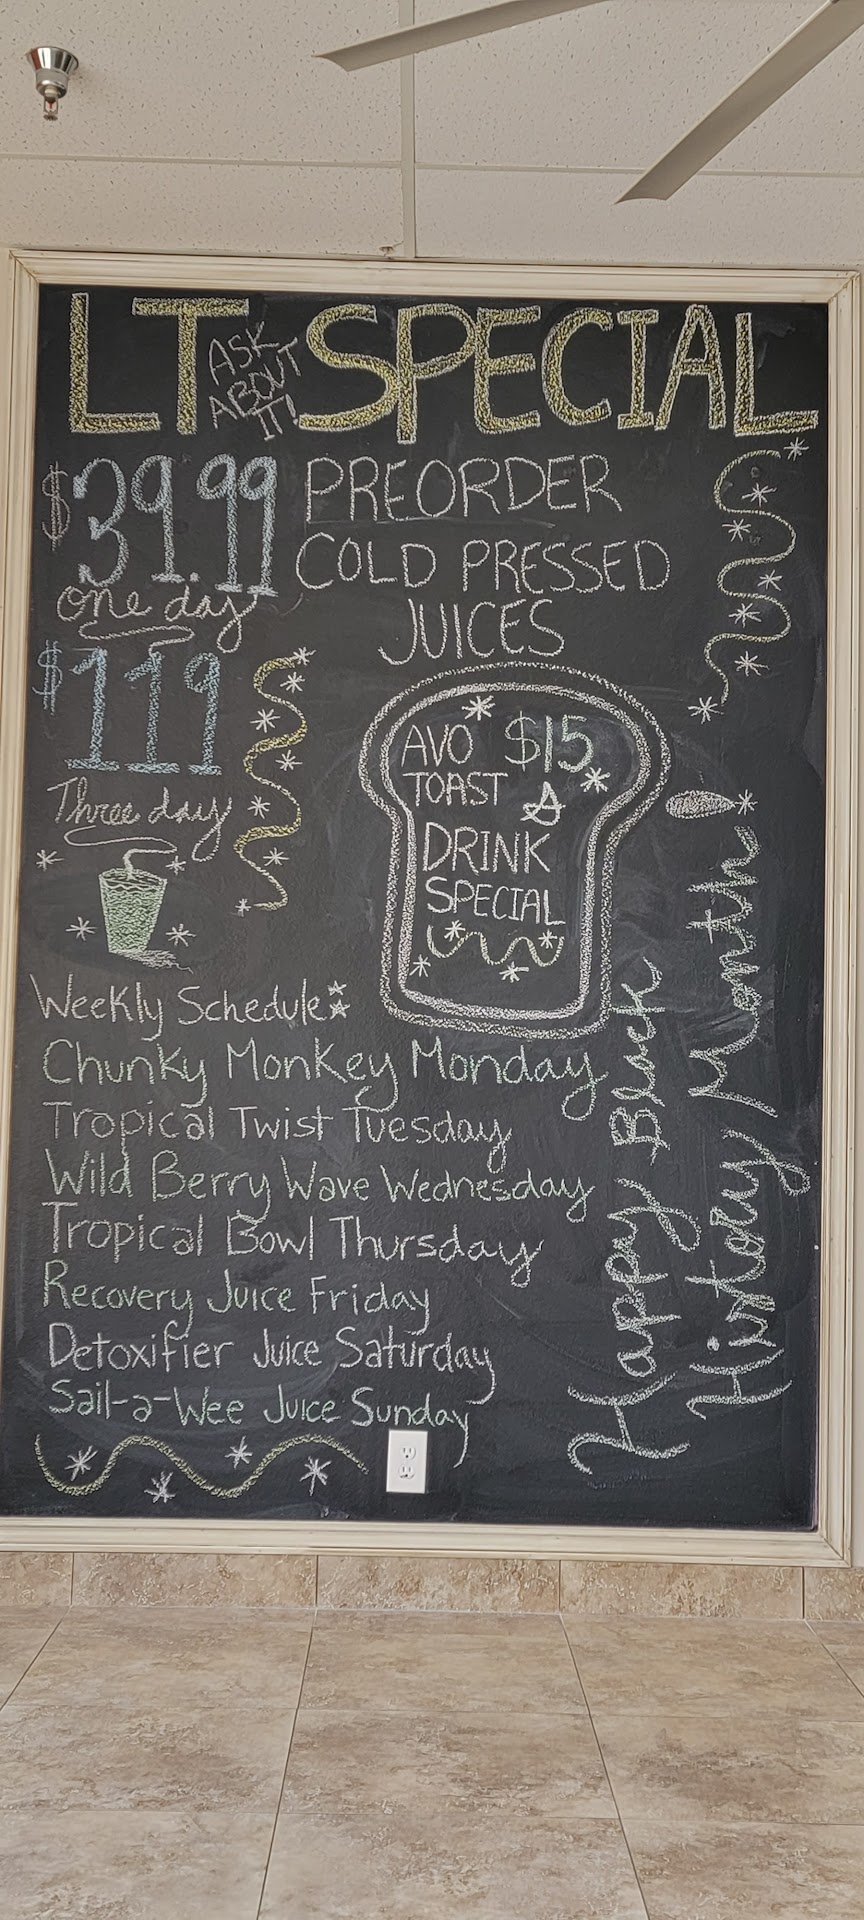 LT SPECIAL
ASK
ABOUT
IT!
$39.99
one day
PREORDER
COLD PRESSED
JUICES
$119
Three day
AVO $15
TOAST &
DRINK
SPECIAL
Weekly Schedule:
Chunky Monkey Monday
Tropical Twist Tuesday
Wild Berry Wave Wednesday
Tropical Bowl Thursday
Recovery Juice Friday
Detoxifier Juice Saturday
Sail-a-Wee Juice Sunday
Happy Black
History Month!